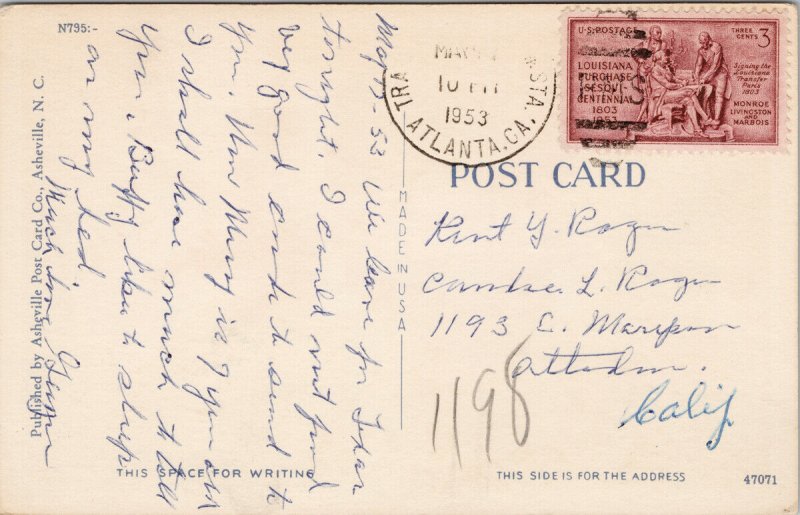 N795:-
May 13-53 We leave for
tonight. I could not find
very good cards to send to
you. Now Mary is 7 years old
I shall have much to tell
you. Buffy likes to sleep
on my bed
Much love
Published by Asheville Post Card Co., Asheville, N. C.
MADE IN USA
THIS SPACE FOR WRITING
TRA STA.
10 PM
1953
ATLANTA, GA.
U.S. POSTAGE
THREE CENTS 3
LOUISIANA
PURCHASE
SESQUI-
CENTENNIAL
1803
1953
Signing the
Louisiana
Transfer
Paris
1803
MONROE
LIVINGSTON
AND
MARBOIS
POST CARD
Kent Y.
Candice L.
1193 E. Mariposa
Altadena.
Calif
1198
THIS SIDE IS FOR THE ADDRESS
47071